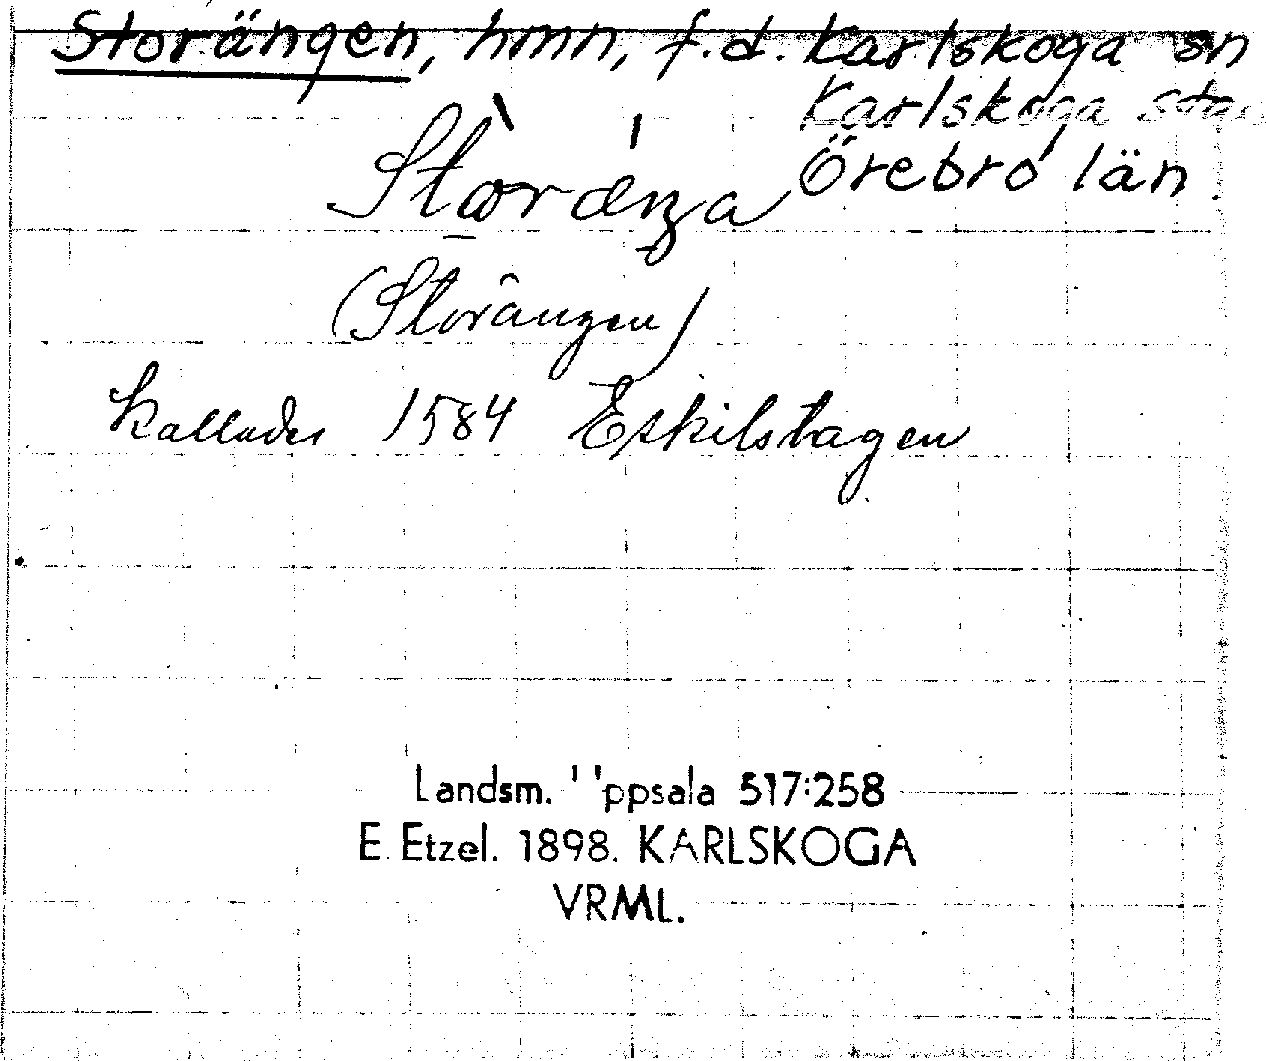 Storängen, hmn, f.d. Karlskoga sn
Karlskoga stad
Örebro län
(Storängen)
kallades 1584 Eskilstagen
Landsm. Uppsala 517:258
E. Etzel. 1898. KARLSKOGA
VRML.